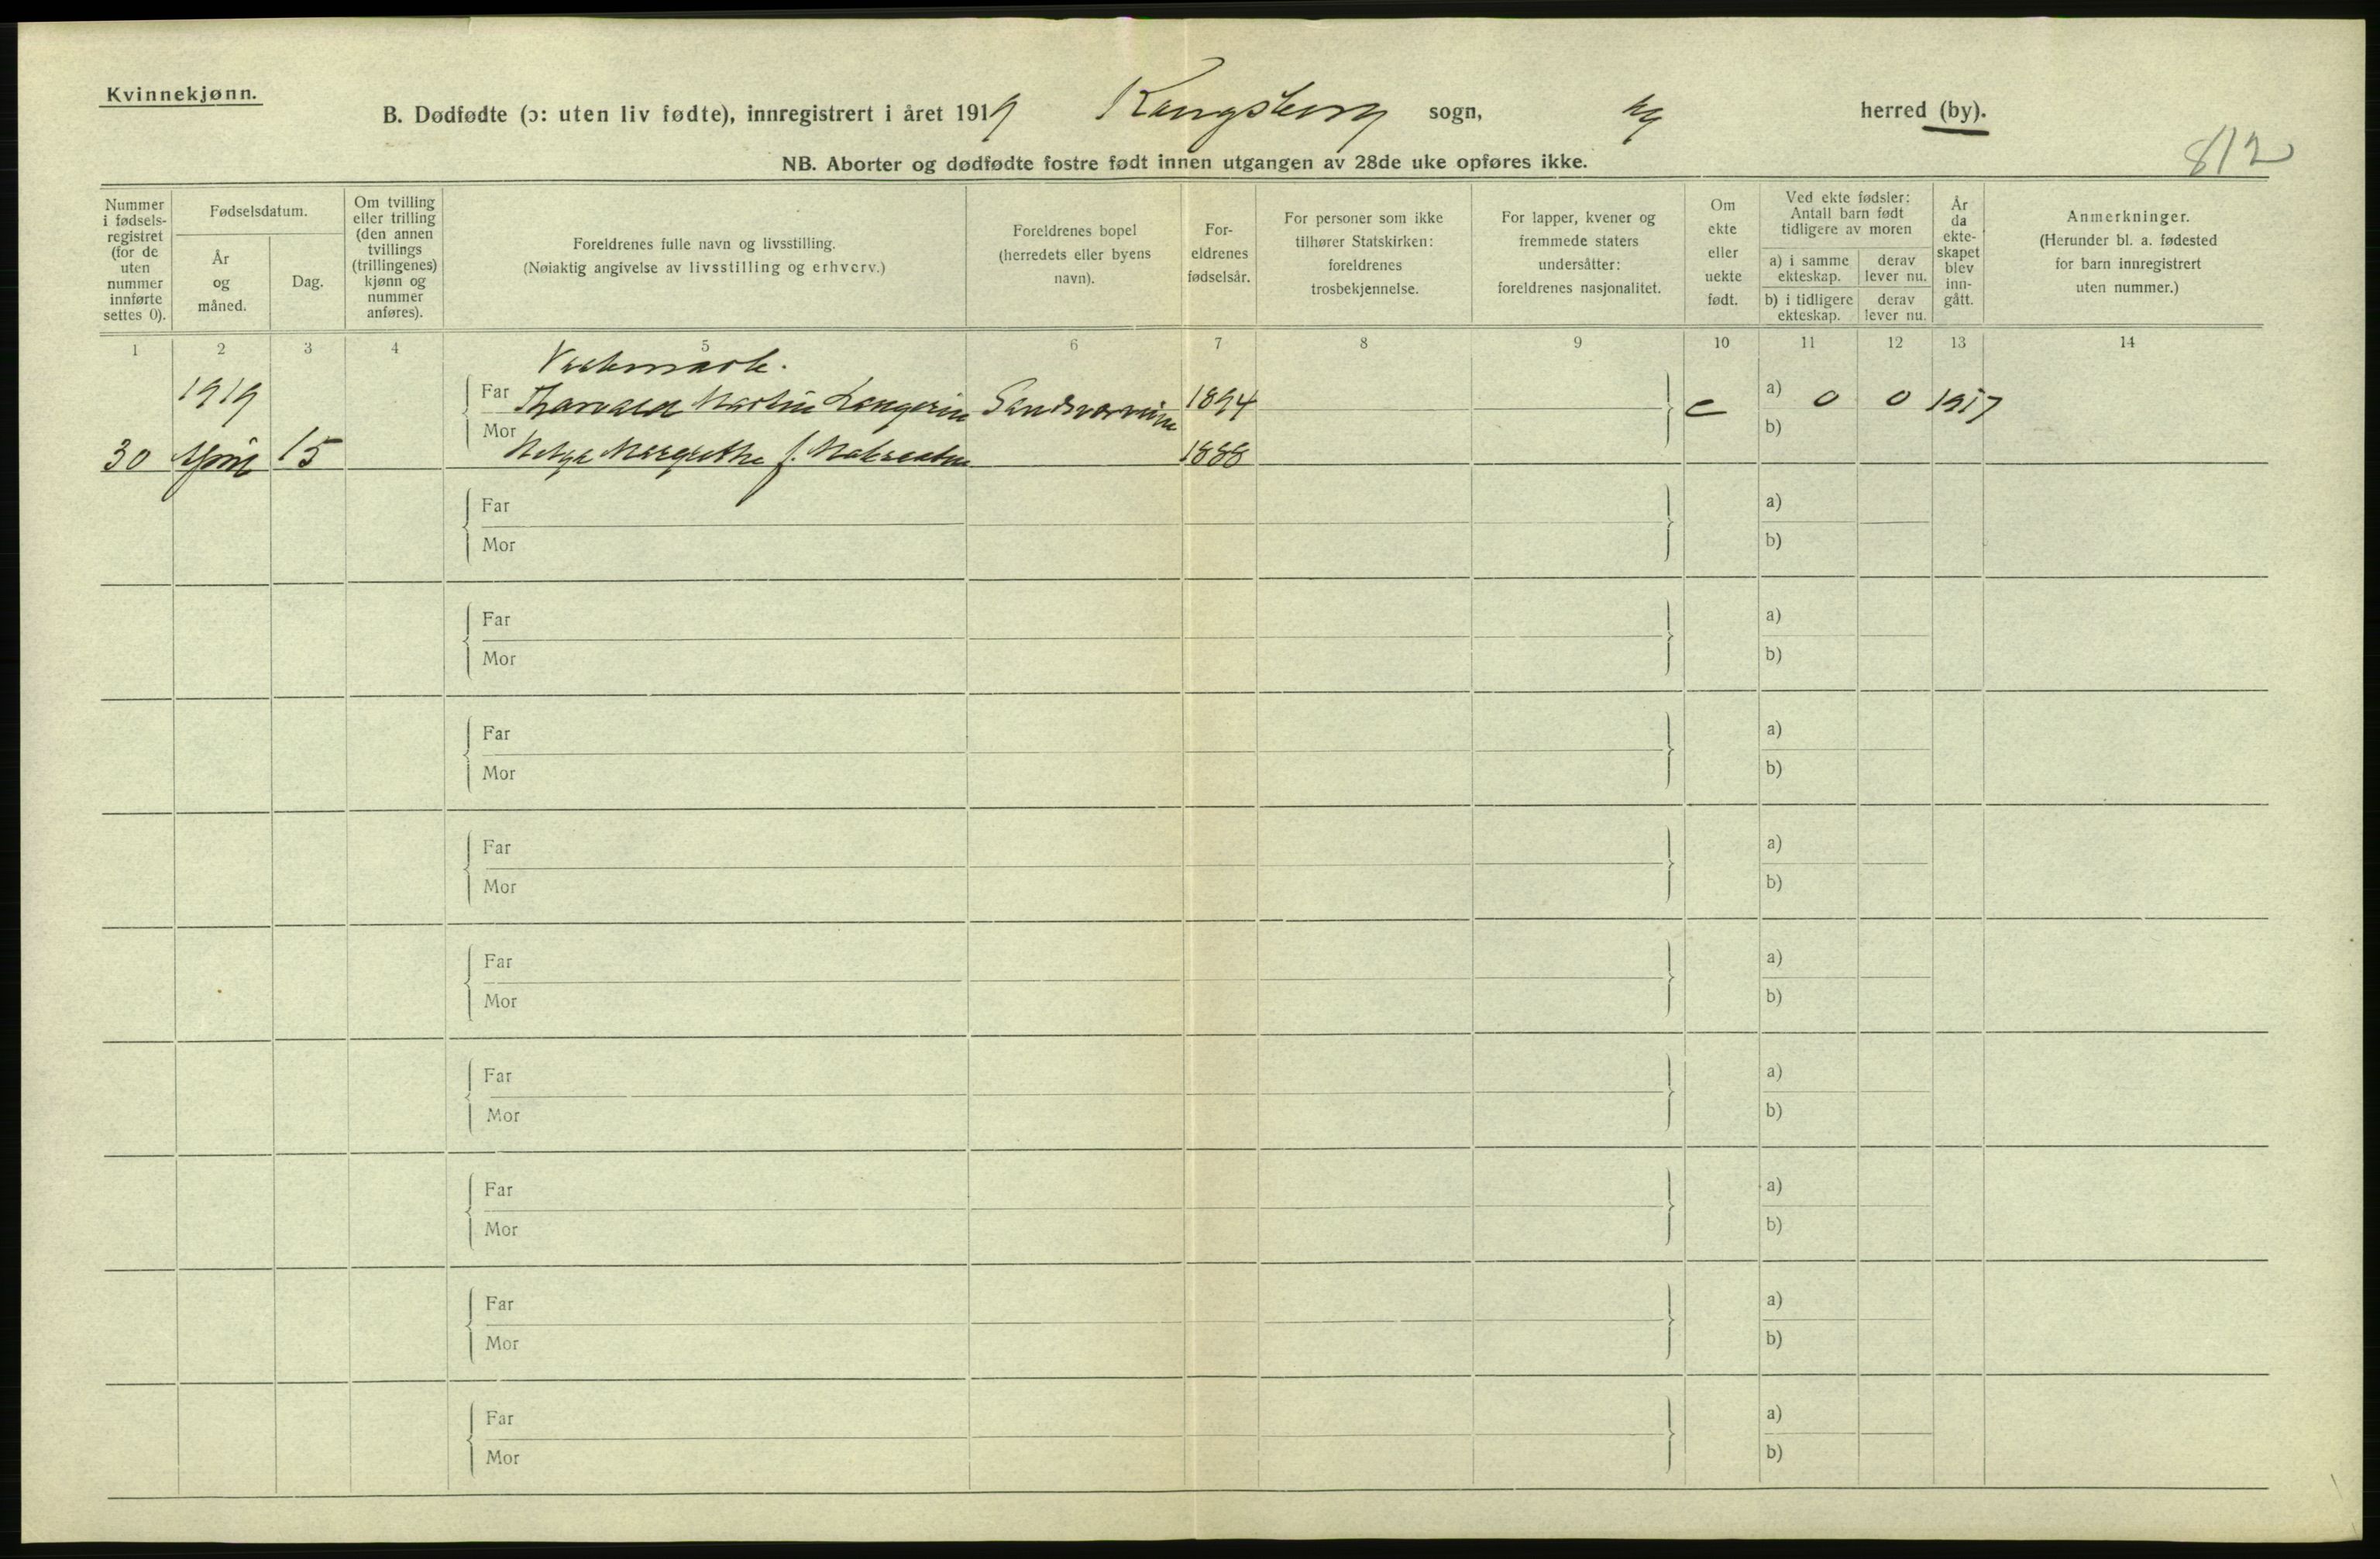 Kvinnekjønn.
B. Dødfødte (ɔ: uten liv fødte), innregistrert i året 1919 Kongsberg sogn, herred (by).
812
NB. Aborter og dødfødte fostre født innen utgangen av 28de uke opføres ikke.
Nummer i fødsels-registret (for de uten nummer innførte settes 0).
Fødselsdatum.
År og måned.
Dag.
Om tvilling eller trilling (den annen tvillings (trillingenes) kjønn og nummer anføres).
Foreldrenes fulle navn og livsstilling.
(Nøiaktig angivelse av livsstilling og erhverv.)
Foreldrenes bopel (herredets eller byens navn).
For-eldrenes fødselsår.
For personer som ikke tilhører Statskirken: foreldrenes trosbekjennelse.
For lapper, kvener og fremmede staters undersåtter: foreldrenes nasjonalitet.
Om ekte eller uekte født.
Ved ekte fødsler: Antall barn født tidligere av moren
a) i samme ekteskap.
derav lever nu.
b) i tidligere ekteskap.
derav lever nu.
År da ekte-skapet blev inn-gått.
Anmerkninger.
(Herunder bl. a. fødested for barn innregistrert uten nummer.)
1 2 3 4 5 6 7 8 9 10 11 12 13 14
1919 Far Martin 1894 e a) 0 0 1917
30 April 15 Mor Helga Margrethe f. 1888 b)
Far a)
Mor b)
Far a)
Mor b)
Far a)
Mor b)
Far a)
Mor b)
Far a)
Mor b)
Far a)
Mor b)
Far a)
Mor b)
Far a)
Mor b)
Far a)
Mor b)